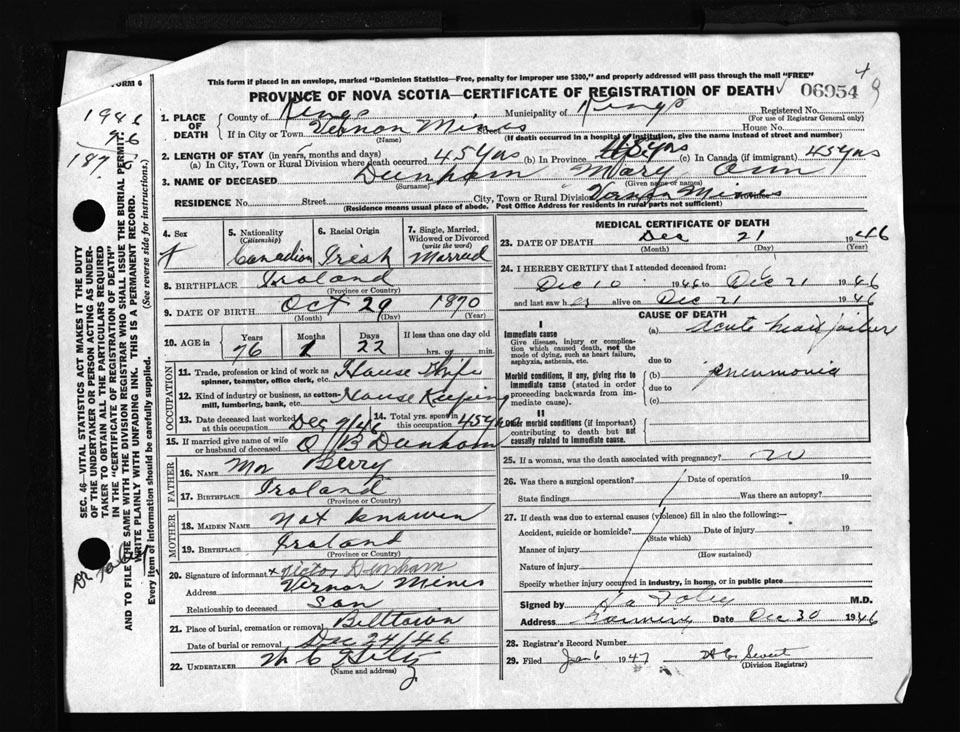 This form if placed in an envelope, marked "Dominion Statistics—Free, penalty for improper use $300," and properly addressed will pass through the mail "FREE"
FORM 6
PROVINCE OF NOVA SCOTIA—CERTIFICATE OF REGISTRATION OF DEATH 06954
1946
76
1870
1. PLACE OF DEATH County of Kings Municipality of Kings Registered No.
(For use of Registrar General only)
If in City or Town Vernon Mines Street House No.
(Name) (If death occurred in a hospital or institution, give the name instead of street and number)
2. LENGTH OF STAY (in years, months and days)
(a) In City, Town or Rural Division where death occurred 45 Yrs (b) In Province 45 Yrs (c) In Canada (if immigrant) 45 Yrs
3. NAME OF DECEASED Dunham Mary Ann
(Surname) (Given name or names)
RESIDENCE No. Street City, Town or Rural Division Vernon Mines Province
(Residence means usual place of abode. Post Office Address for residents in rural parts not sufficient)
4. Sex F
5. Nationality (Citizenship) Canadian
6. Racial Origin Irish
7. Single, Married, Widowed or Divorced (write the word) Married
8. BIRTHPLACE Iroland
(Province or Country)
9. DATE OF BIRTH Oct 29 1870
(Month) (Day) (Year)
10. AGE in Years Months Days If less than one day old
76 1 22 hrs. or min.
OCCUPATION
11. Trade, profession or kind of work as spinner, teamster, office clerk, etc. House Wife
12. Kind of industry or business, as cotton-mill, lumbering, bank, etc. House Keeping
13. Date deceased last worked at this occupation Dec 9/46 14. Total yrs. spent in this occupation 45 Yrs
15. If married give name of wife or husband of deceased O B Dunham
FATHER
16. NAME Mr Berry
17. BIRTHPLACE Iroland
(Province or Country)
MOTHER
18. MAIDEN NAME Not knowen
19. BIRTHPLACE Iroland
(Province or Country)
20. Signature of informant x Victor Dunham
Address Vernon Mines
Relationship to deceased Son
21. Place of burial, cremation or removal Billtown
Date of burial or removal Dec 24/46
22. UNDERTAKER W C Hiltz
(Name and address)
MEDICAL CERTIFICATE OF DEATH
23. DATE OF DEATH Dec 21 1946
(Month) (Day) (Year)
24. I HEREBY CERTIFY that I attended deceased from:
Dec 10 1946 to Dec 21 1946
and last saw her alive on Dec 21 1946
CAUSE OF DEATH
I
Immediate cause
Give disease, injury or complication which caused death, not the mode of dying, such as heart failure, asphyxia, asthenia, etc.
(a) Acute heart failure
due to
Morbid conditions, if any, giving rise to immediate cause (stated in order proceeding backwards from immediate cause).
(b) pneumonia
due to
(c)
II
Other morbid conditions (if important) contributing to death but not causally related to immediate cause.
25. If a woman, was the death associated with pregnancy? no
26. Was there a surgical operation? Date of operation 19
State findings Was there an autopsy?
27. If death was due to external causes (violence) fill in also the following:—
Accident, suicide or homicide? Date of injury 19
(State which)
Manner of injury (How sustained)
Nature of injury
Specify whether injury occurred in industry, in home, or in public place
Signed by Foley M.D.
Address Date Dec 30 1946
28. Registrar's Record Number
29. Filed Jan 6 1947
(Division Registrar)
SEC. 46- VITAL STATISTICS ACT MAKES IT THE DUTY
OF THE UNDERTAKER OR PERSON ACTING AS UNDER-
TAKER TO OBTAIN ALL THE PARTICULARS REQUIRED
IN THE "CERTIFICATE OF REGISTRATION OF DEATH"
AND TO FILE THE SAME WITH THE DIVISION REGISTRAR WHO SHALL ISSUE THE BURIAL PERMIT.
WRITE PLAINLY WITH UNFADING INK. THIS IS A PERMANENT RECORD.
Every item of information should be carefully supplied. (See reverse side for instructions.)